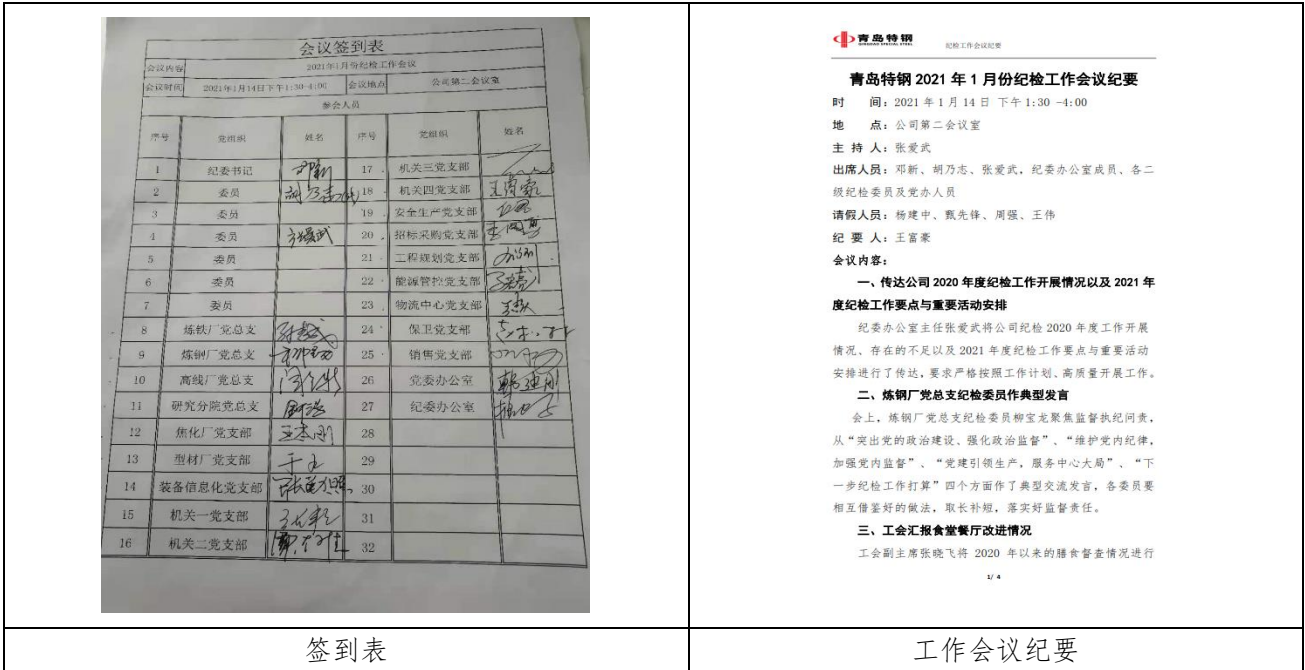 会议签到表
会议内容 2021年1月份纪检工作会议
会议时间 2021年1月14日下午1:30-4:00 会议地点 公司第二会议室
参会人员
序号 党组织 姓名 序号 党组织 姓名
1 纪委书记 邓新 17 机关三党支部
2 委员 胡乃志 18 机关四党支部 王富豪
3 委员 19 安全生产党支部
4 委员 张爱武 20 招标采购党支部
5 委员 21 工程规划党支部
6 委员 22 能源管控党支部
7 委员 23 物流中心党支部
8 炼铁厂党总支 24 保卫党支部
9 炼钢厂党总支 25 销售党支部
10 高线厂党总支 26 党委办公室
11 研究分院党总支 27 纪委办公室
12 焦化厂党支部 28
13 型材厂党支部 29
14 装备信息化党支部 30
15 机关一党支部 31
16 机关二党支部 32
签到表
青岛特钢
QINGDAO SPECIAL STEEL
纪检工作会议纪要
青岛特钢 2021 年 1 月份纪检工作会议纪要
时 间：2021 年 1 月 14 日 下午 1:30 -4:00
地 点：公司第二会议室
主 持 人：张爱武
出席人员：邓新、胡乃志、张爱武，纪委办公室成员、各二
级纪检委员及党办人员
请假人员：杨建中、甄先锋、周强、王伟
纪 要 人：王富豪
会议内容：
一、传达公司 2020 年度纪检工作开展情况以及 2021 年
度纪检工作要点与重要活动安排
纪委办公室主任张爱武将公司纪检 2020 年度工作开展
情况、存在的不足以及 2021 年度纪检工作要点与重要活动
安排进行了传达，要求严格按照工作计划、高质量开展工作。
二、炼钢厂党总支纪检委员作典型发言
会上，炼钢厂党总支纪检委员柳宝龙聚焦监督执纪问责，
从“突出党的政治建设、强化政治监督”、“维护党内纪律，
加强党内监督”、“党建引领生产，服务中心大局”、“下
一步纪检工作打算”四个方面作了典型交流发言，各委员要
相互借鉴好的做法，取长补短，落实好监督责任。
三、工会汇报食堂餐厅改进情况
工会副主席张晓飞将 2020 年以来的膳食督查情况进行
1/ 4
工作会议纪要